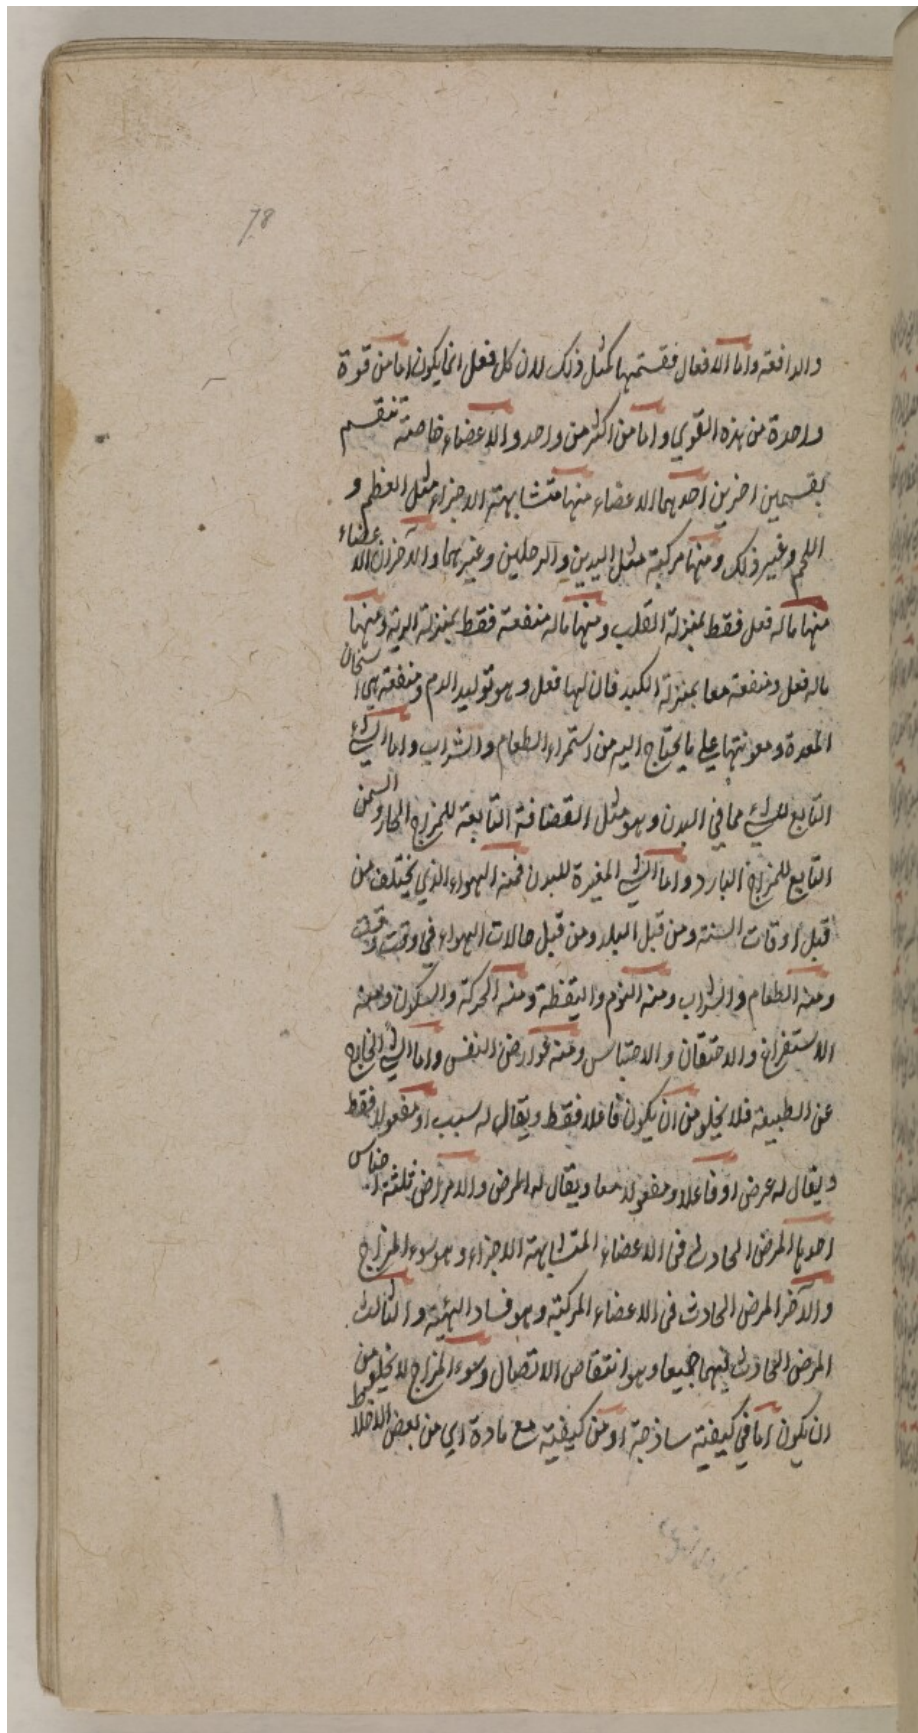 78
والدافعة واما الافعال فقسمتها كمثل ذلك لان كل فعل انما يكون اما من قوة
واحدة من هذه القوي واما من اكثر من واحد والاعضاء خاصته تنقسم
بقسمين اخرين احدهما الاعضاء منها متشابهة الاجزاء مثل العظم و
اللحم وغير ذلك ومنها مركبة مثل اليدين والرجلين وغيرهما والآخر ان الاعضاء
منها ماله فعل فقط بمنزلة القلب ومنها ماله منفعة فقط بمنزلة الرية ومنها
ماله فعل ومنفعة معا بمنزلة الكبد فان لها فعل وهو توليد الدم ومنفعة هي اسخان
المعدة ومعونتها علي ما يحتاج اليه من استمراء الطعام والشراب واما الشئ
التابع للشئ مما في البدن وهو مثل القضافة التابعة للمزاج الحار والسمن
التابع للمزاج البارد واما الشئ المغيرة للبدن فمنه الهواء الذي يختلف من
قبل اوقات السنة ومن قبل البلد ومن قبل حالات الهواء في وقت وقت
ومنه الطعام والشراب ومنه النوم واليقظة ومنه الحركة والسكون ومنه
الاستفراغ والاحتقان والاحتباس ومنه عوارض النفس واما الشئ الخارج
عن الطبيعة فلا يخلو من ان يكون فاعلا فقط ويقال له سبب او مفعولا فقط
ويقال له عرض او فاعلا ومفعولا معا ويقال له المرض والامراض ثلثة اجناس
احدها المرض الحادث في الاعضاء المتشابهة الاجزاء وهو سوء المزاج
والآخر المرض الحادث في الاعضاء المركبة وهو فساد الهيئة والثالث
المرض الحادث فيهما جميعا وهو انتقاص الاتصال وسوء المزاج لا يخلو من
ان يكون اما في كيفية ساذجة او من كيفية مع مادة اي من بعض الاخلاط